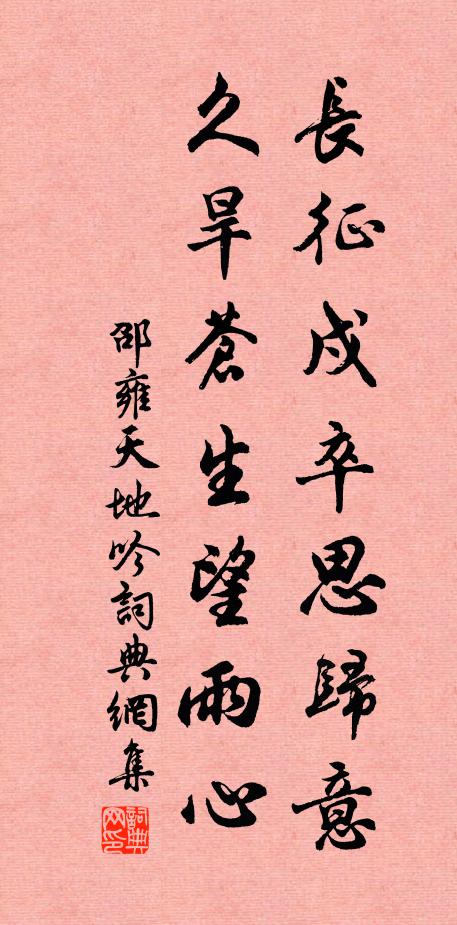 長征戍卒思歸意
久旱蒼生望雨心
邵雍天地吟詞典網集
詞典网印